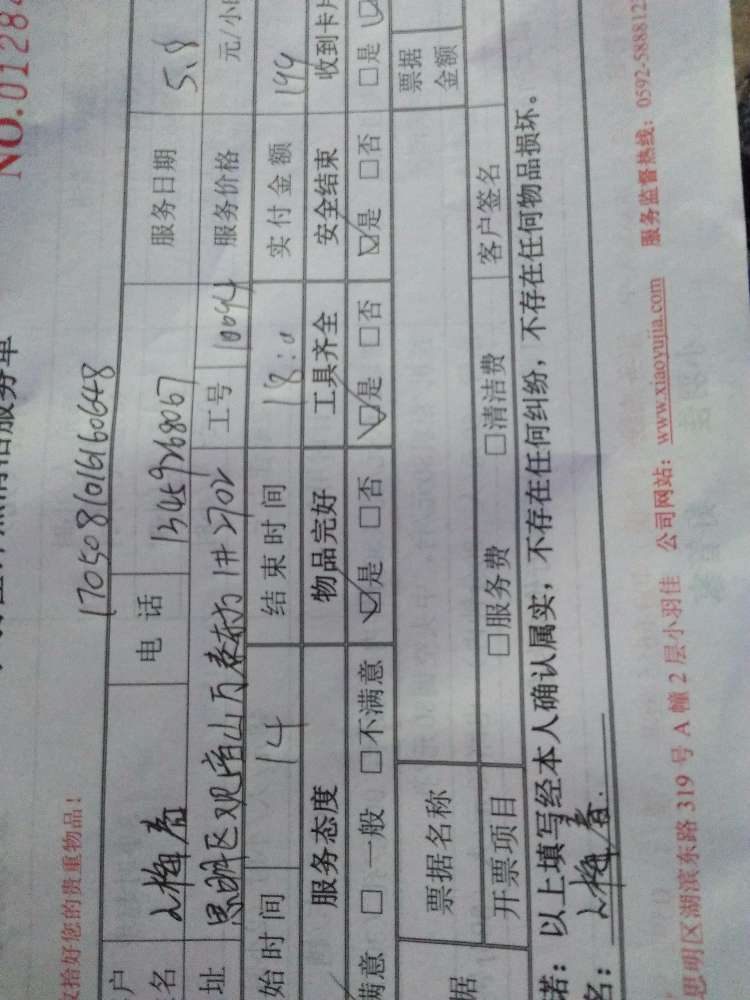 NO.0128
收拾好您的贵重物品!
1705081016160648
户名 电话 13459268067 服务日期 5.8
址 思明区观音山万泰东方1#2702 工号 10094 服务价格 元/小
始时间 14 结束时间 18:0 实付金额 144
服务态度 物品完好 工具齐全 安全结束 收到卡片
满意 □一般 □不满意 ☑是 □否 ☑是 □否 ☑是 □否 □是
据 票据名称 票据金额
开票项目 □服务费 □清洁费 客户签名
诺:以上填写经本人确认属实,不存在任何纠纷,不存在任何物品损坏。
名:
思明区湖滨东路 319 号 A 幢 2 层小羽佳 公司网站:www.xiaoyujia.com 服务监督热线:0592-588812